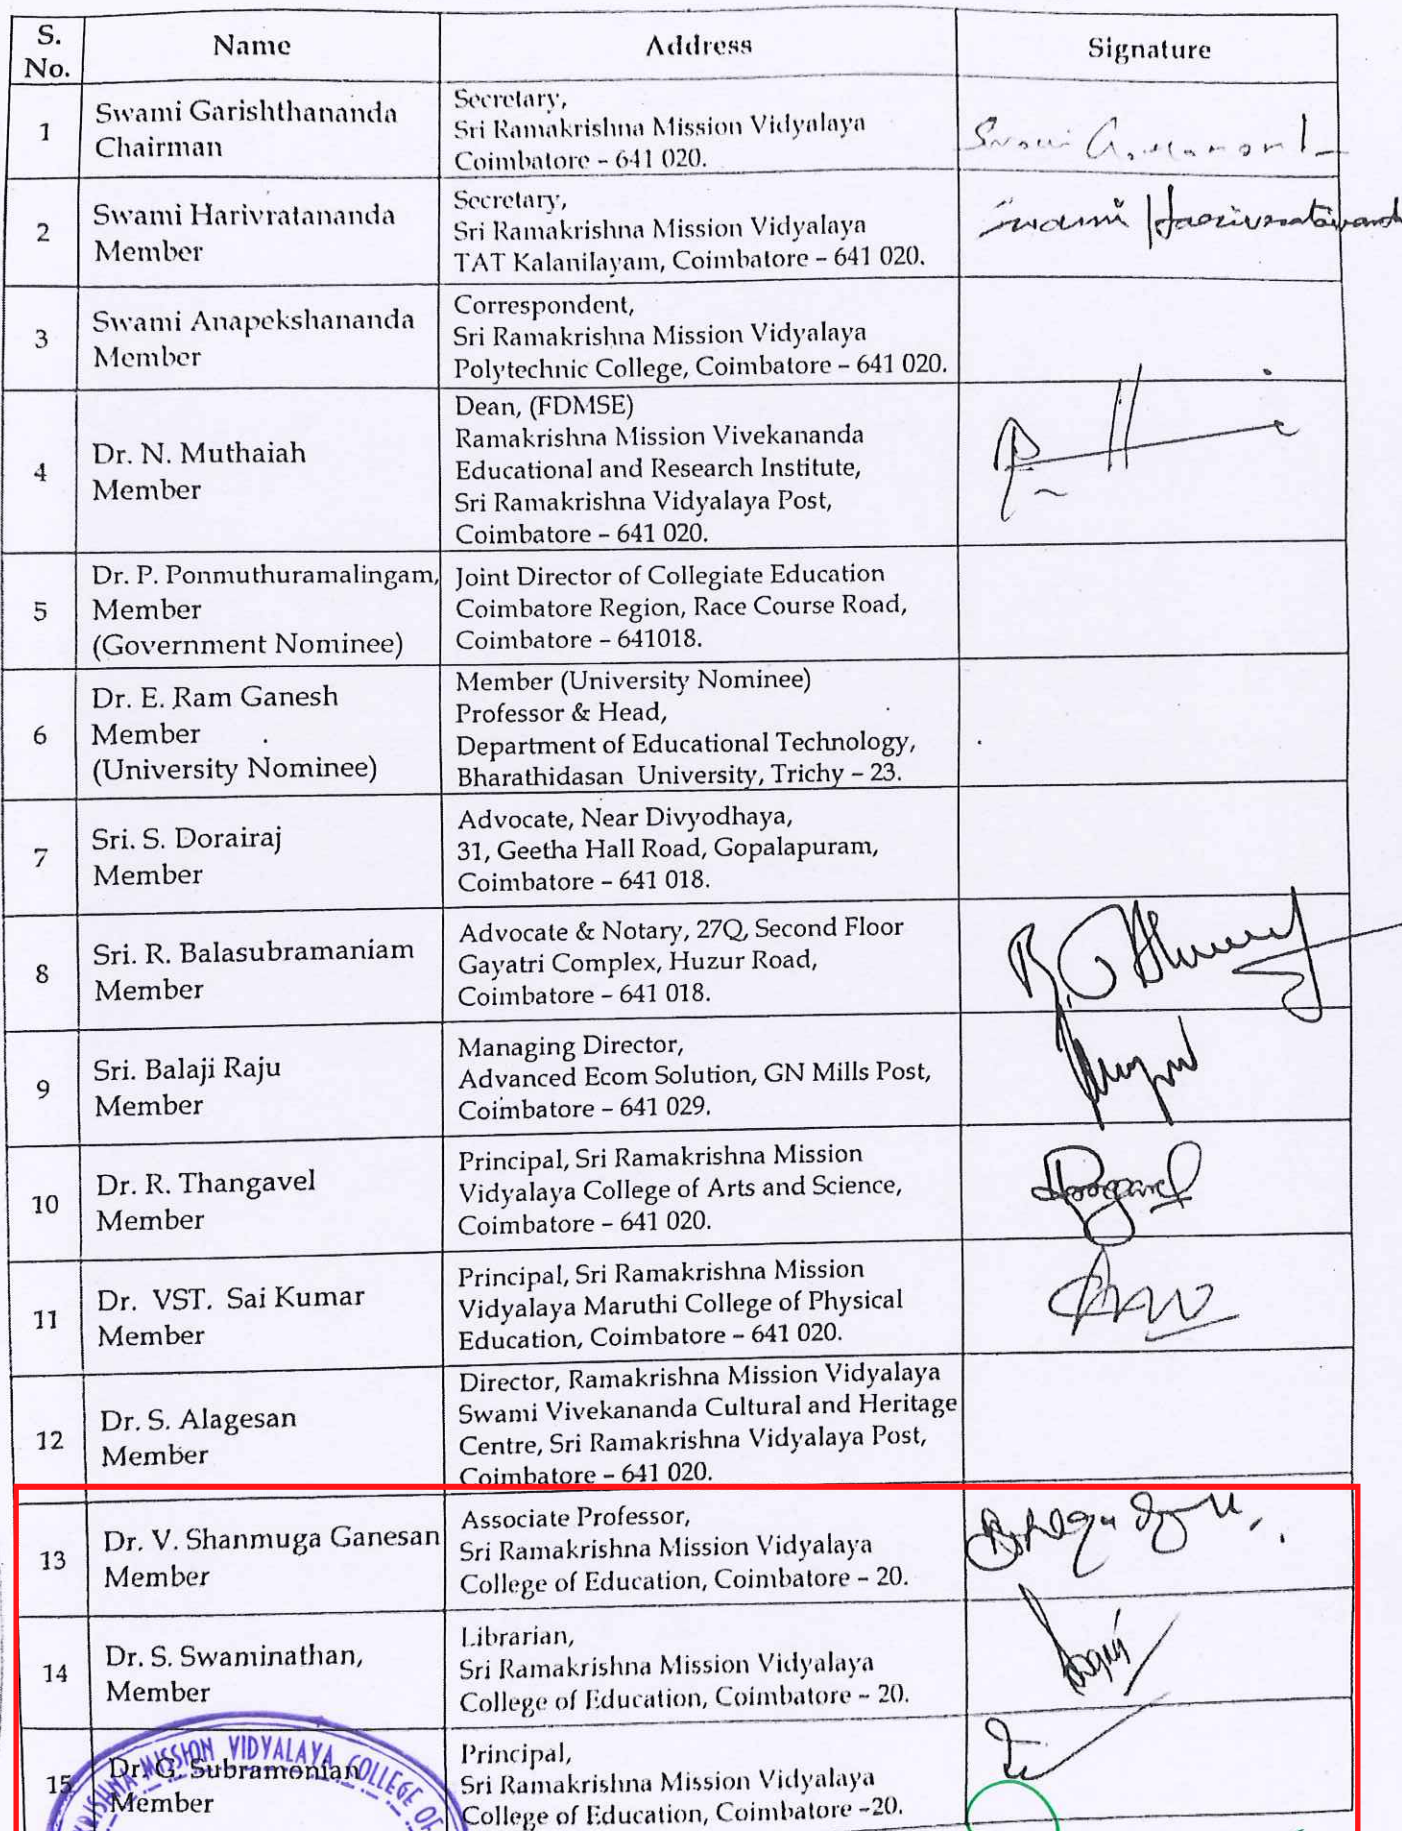 S. No. Name Address Signature
1 Swami Garishthananda
Chairman
Secretary,
Sri Ramakrishna Mission Vidyalaya
Coimbatore – 641 020.
2 Swami Harivratananda
Member
Secretary,
Sri Ramakrishna Mission Vidyalaya
TAT Kalanilayam, Coimbatore – 641 020.
Swami Harivratananda
3 Swami Anapekshananda
Member
Correspondent,
Sri Ramakrishna Mission Vidyalaya
Polytechnic College, Coimbatore – 641 020.
4 Dr. N. Muthaiah
Member
Dean, (FDMSE)
Ramakrishna Mission Vivekananda
Educational and Research Institute,
Sri Ramakrishna Vidyalaya Post,
Coimbatore – 641 020.
5 Dr. P. Ponmuthuramalingam,
Member
(Government Nominee)
Joint Director of Collegiate Education
Coimbatore Region, Race Course Road,
Coimbatore – 641018.
6 Dr. E. Ram Ganesh
Member
(University Nominee)
Member (University Nominee)
Professor & Head,
Department of Educational Technology,
Bharathidasan University, Trichy – 23.
7 Sri. S. Dorairaj
Member
Advocate, Near Divyodhaya,
31, Geetha Hall Road, Gopalapuram,
Coimbatore – 641 018.
8 Sri. R. Balasubramaniam
Member
Advocate & Notary, 27Q, Second Floor
Gayatri Complex, Huzur Road,
Coimbatore – 641 018.
9 Sri. Balaji Raju
Member
Managing Director,
Advanced Ecom Solution, GN Mills Post,
Coimbatore – 641 029.
10 Dr. R. Thangavel
Member
Principal, Sri Ramakrishna Mission
Vidyalaya College of Arts and Science,
Coimbatore – 641 020.
11 Dr. VST. Sai Kumar
Member
Principal, Sri Ramakrishna Mission
Vidyalaya Maruthi College of Physical
Education, Coimbatore – 641 020.
12 Dr. S. Alagesan
Member
Director, Ramakrishna Mission Vidyalaya
Swami Vivekananda Cultural and Heritage
Centre, Sri Ramakrishna Vidyalaya Post,
Coimbatore – 641 020.
13 Dr. V. Shanmuga Ganesan
Member
Associate Professor,
Sri Ramakrishna Mission Vidyalaya
College of Education, Coimbatore – 20.
14 Dr. S. Swaminathan,
Member
Librarian,
Sri Ramakrishna Mission Vidyalaya
College of Education, Coimbatore – 20.
15 Dr. G. Subramonian
Member
Principal,
Sri Ramakrishna Mission Vidyalaya
College of Education, Coimbatore –20.
MISSION VIDYALAYA COLLEGE OF